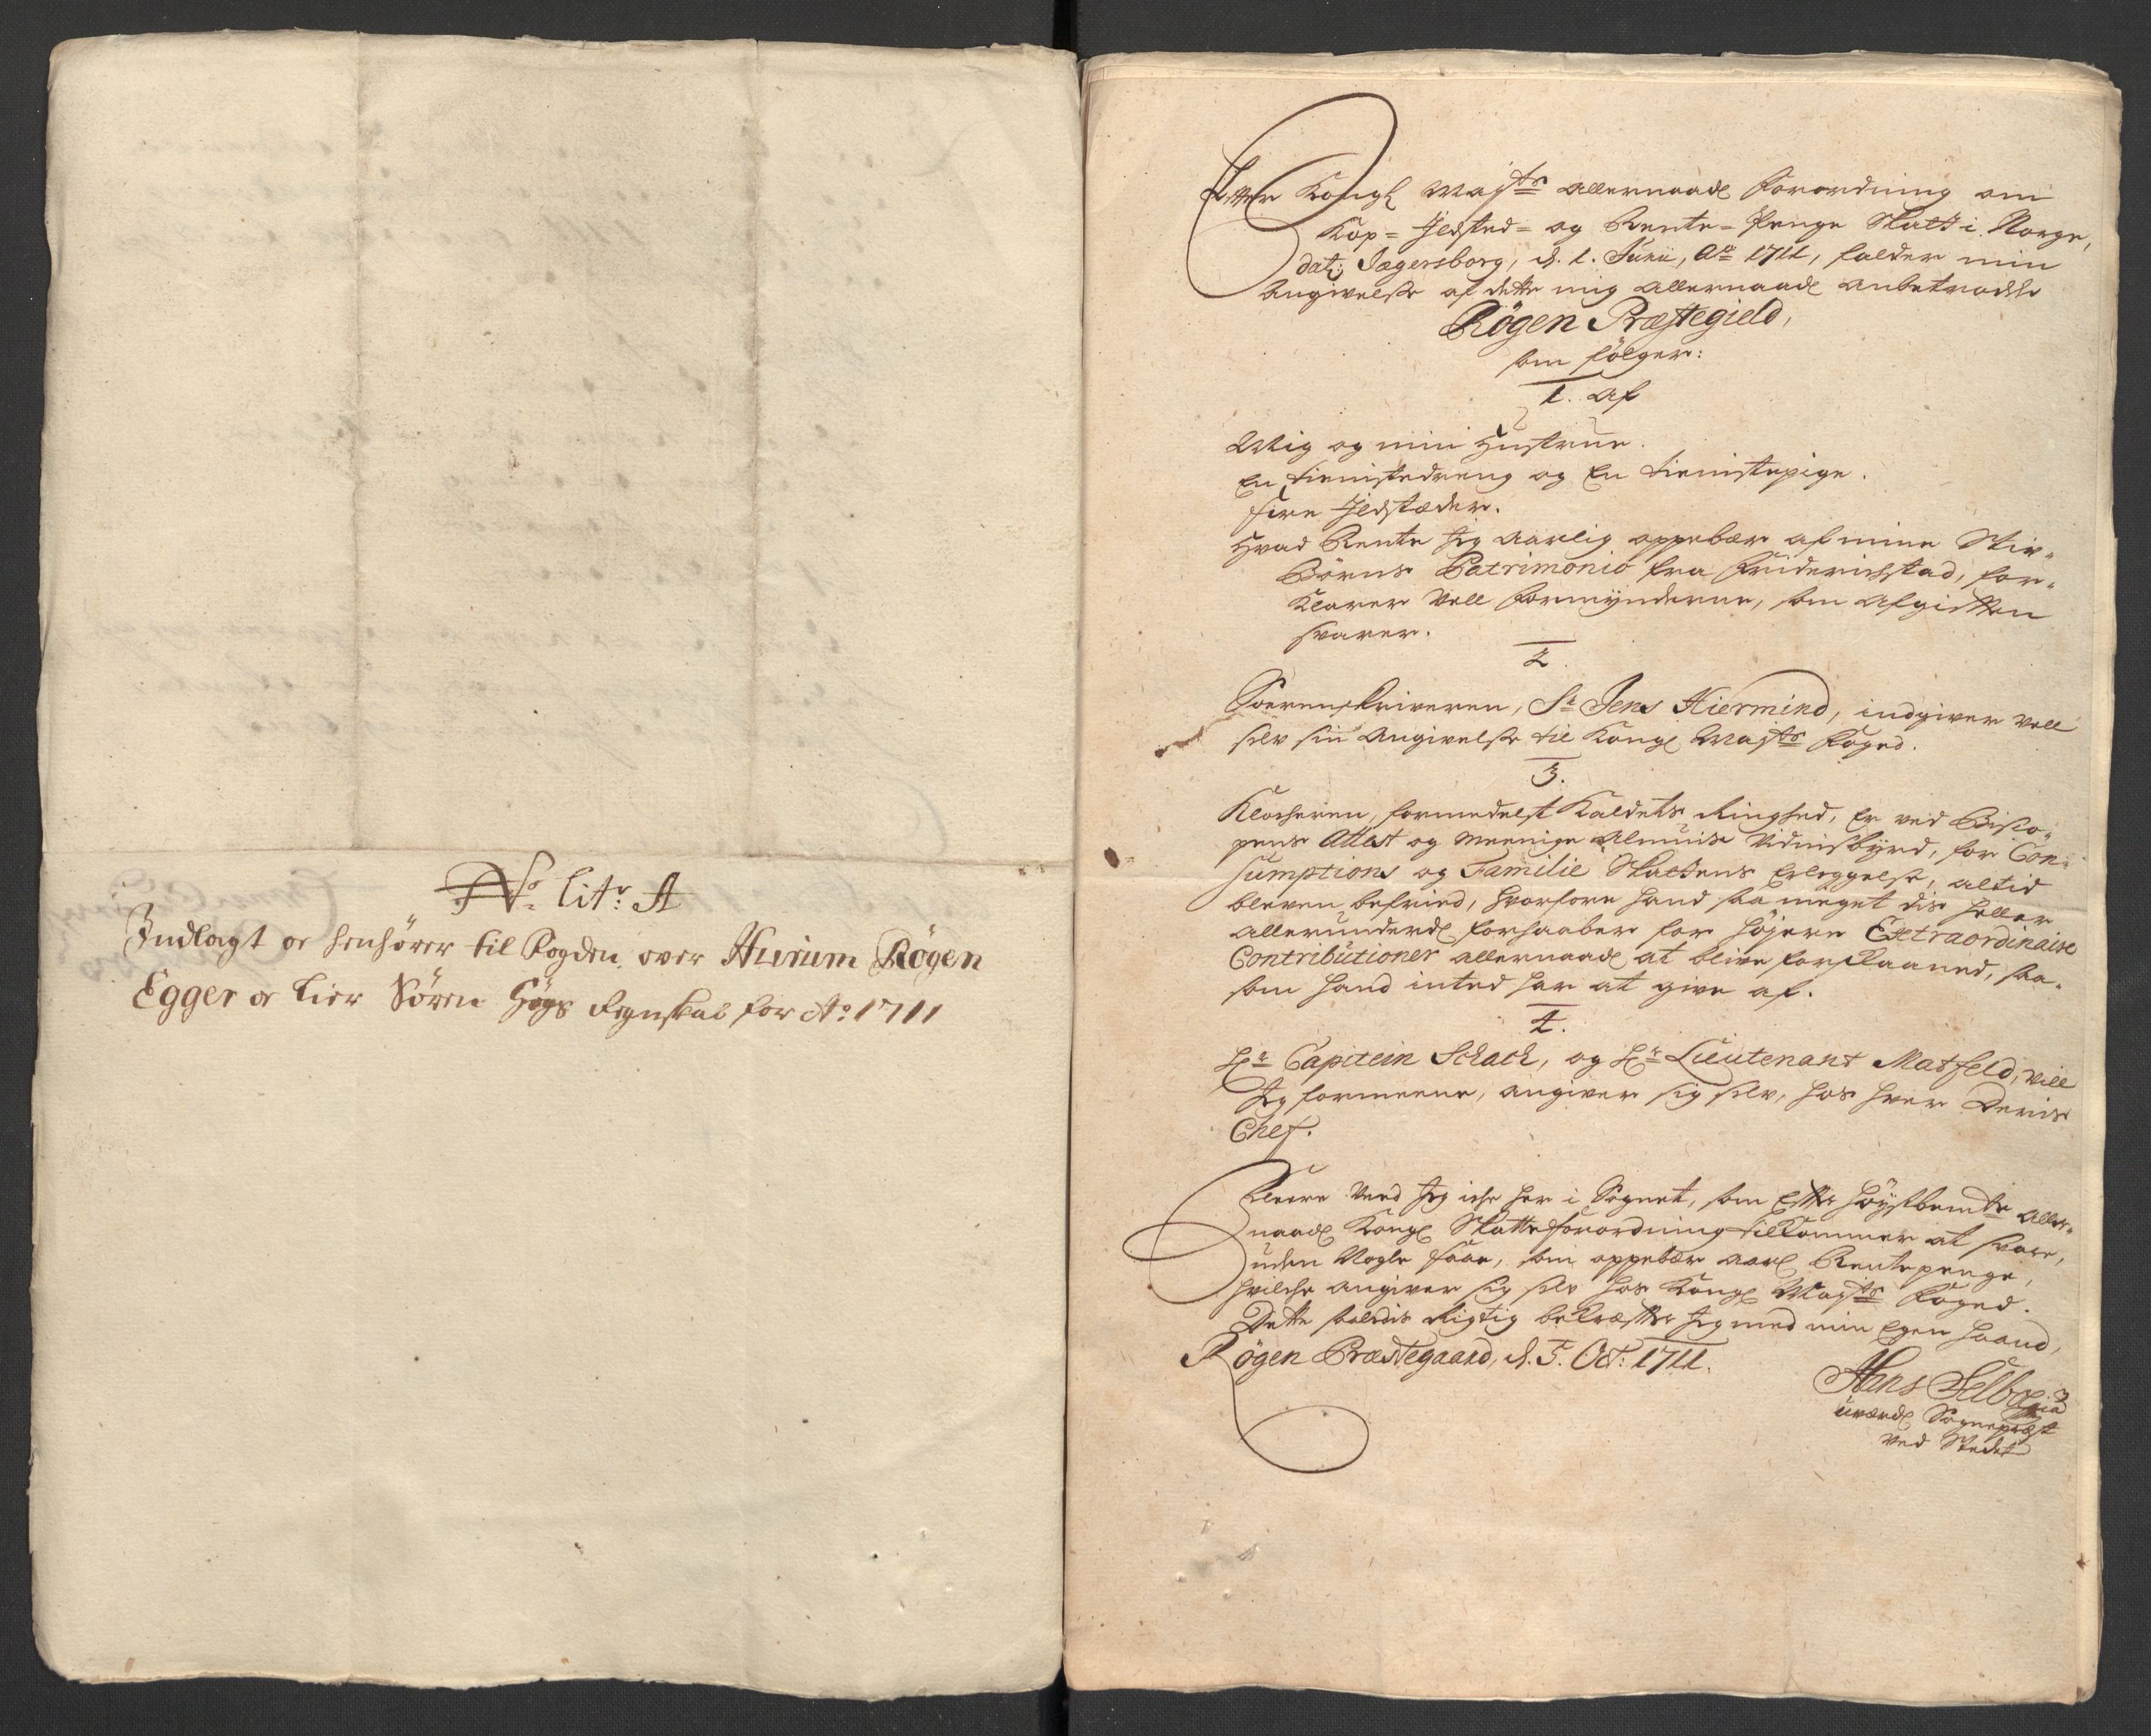 No: litr: A
Indlagt oc henhører til Fogden over Hurum Røgen
Egger oc Lier Søren Høgs Regnskab for Ao 1711
Efter Kongl Majts allernaadl Forordning om
Kop- Ildsted- og Rente-Penge Skatt i Norge,
dat: Jægersborg, d. 1. Junii, Ao 1711, falder min
Angivelse af dette mig allernaadl anbetroede
Røgen Præstegield,
som følger:
1. af
Mig og min Hustrue.
En tienistedreng og En tienistepige.
Fire Ildstæder.
Hvad Rente Jeg aarlig oppebær af mine Stiv-
Børns Patrimonio fra Friderichstad, for-
klarer Vell Formynderne, som afgiften
svarer.
2.
Sorenskriveren, Sr Jens Hiermind, indgiver vell
selv sin Angivelse til Kongl Majts Foged.
3.
Klocheren, formedelst Kaldets Ringhed, Er ved Bisco-
pens Attest og meenige Almuis Vidnisbyrd, for Con-
sumptions og Familie Skattens Erleggelse, altid
bleven befried, hvorfore hand saa meget dis heller
allerunderdl forhaaber for høyere Extraordinaire
Contributioner allernaadl at blive forskaaned, saa-
som hand inted har at give af.
4.
Hr Capitein Schach, og Hr Lieutenant Matfeld, vill
Jeg formeene, angiver sig selv, hos hver Deris
Chef.
Fleere Veed Jeg iche her i Sognet, som Efter høystbemte aller-
naadl Kongl Skatteforordning tilkommer at svare,
uden Nogle faae, som oppebær aarl Rentepenge,
hvilche angiver sig selv hos Kongl Majts Foged.
Dette saaledis Rigtig bekræfter Jeg med min Egen haand,
Røgen Præstegaard, d. 5. Oct: 1711.
Hans
uværdl Sognepræst
ved Stedet